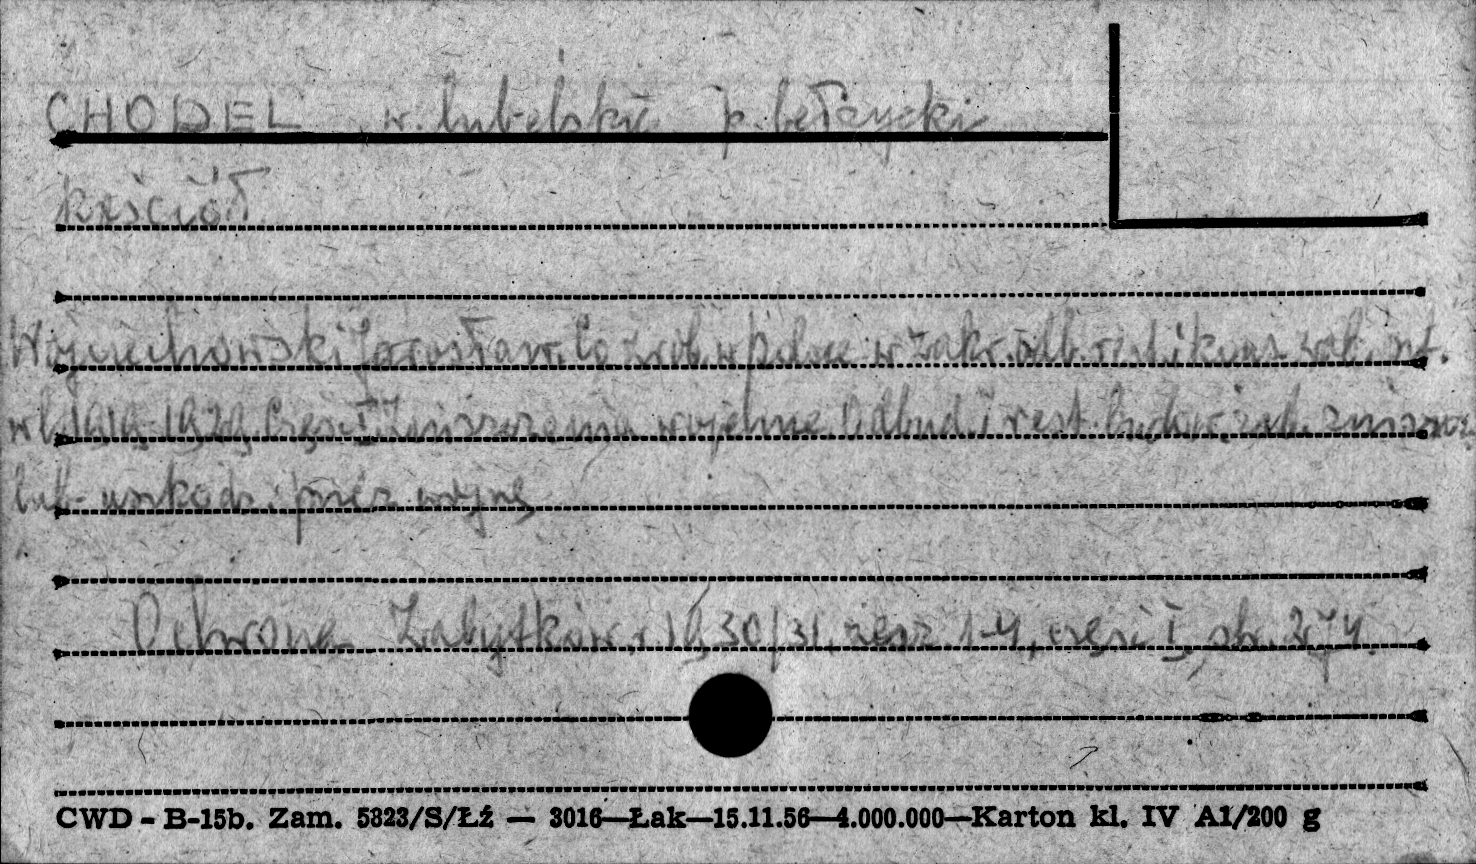 CHODEL w. lubelskie p. bełżycki
kościół
Wojciechowski Jarosław. Co zrob. w Polsce w zakr. odb. rest. i kons. zab. szt.
w l. 1919-1929. Część I Zniszczenia wojenne. Odbud. i rest. budow. zab. zniszcz.
lub uszkodz. przez wojnę
Ochrona Zabytków, r. 1930/31, zesz. 1-4, część I, str. 274.
CWD - B-15b. Zam. 5823/S/Łź — 3016—Łak—15.11.56—4.000.000—Karton kl. IV A1/200 g